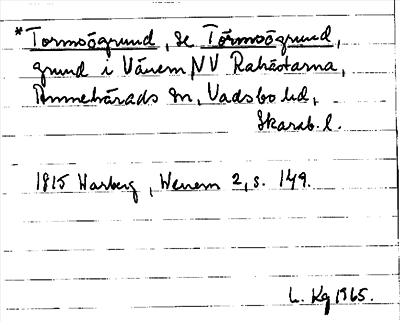 *Tormsögrund, se Törmsögrund,
grund i Vänern NV Rahästarna,
Amnehärads sn, Vadsbo hd,
Skarab. l.
1815 Warberg, Wenern 2, s. 149.
L. Kg 1965.